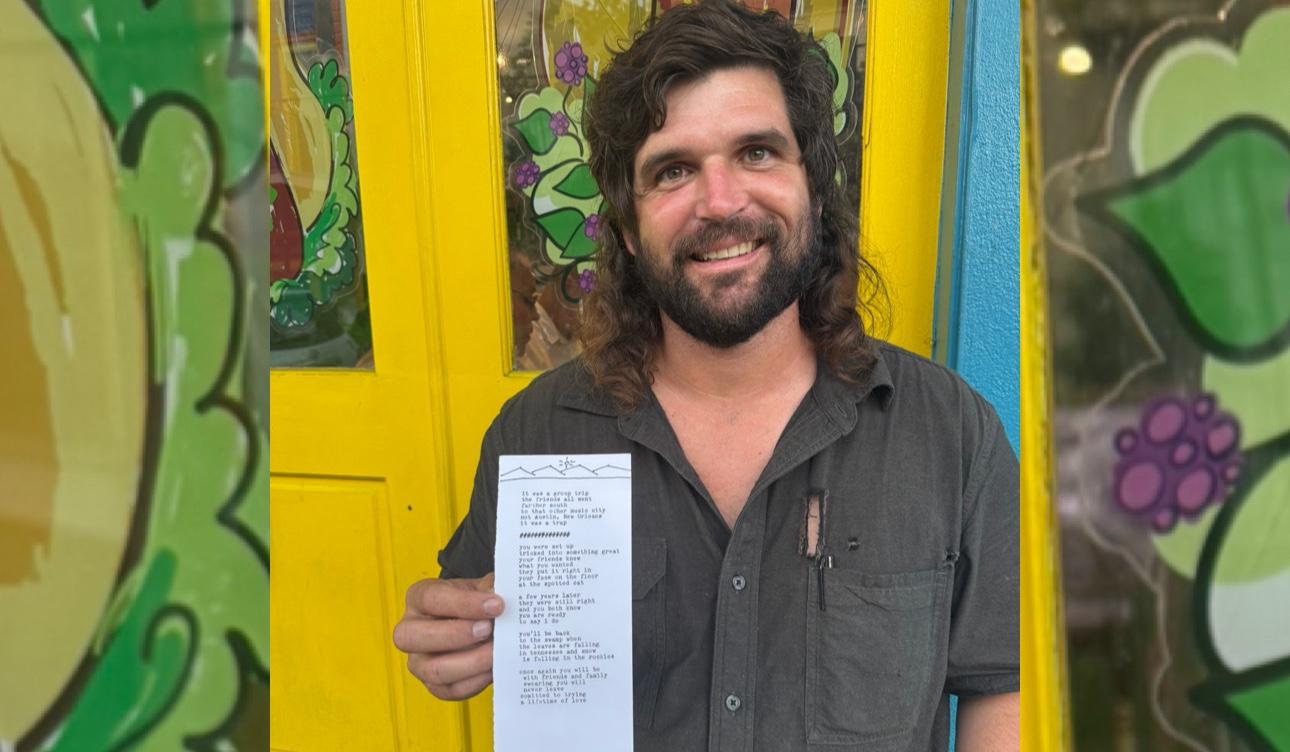 It was a group trip
the friends all went
further south
to that other music city
not austin, New Orleans
it was a trap
################
you were set up
tricked into something great
your friends knew
what you wanted
they put it right in
your face on the floor
at the spotted cat
a few years later
they were still right
and you both know
you are ready
to say i do
you'll be back
to the swamp when
the leaves are falling
in tennessee and snow
is falling in the rockies
once again you will be
with friends and family
swearing you will
never leave
comitted to trying
a lifetime of love